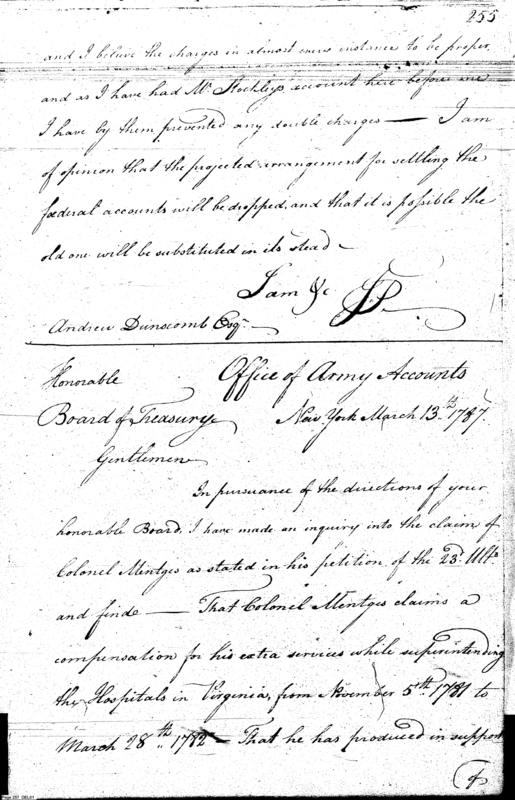 255
and I believe the charges in almost every instance to be proper,
and as I have had Mr Stockleys account here before me
I have by them prevented any double charges — I am
of opinion that the projected arrangement for settling the
fœderal accounts will be dropped, and that it is possible the
old one will be substituted in its stead —
I am &c JP.
Andrew Dunscomb Esqr —
Honorable Office of Army Accounts
Board of Treasury New York March 13th 1787.
Gentlemen
In pursuance of the directions of your
honorable Board, I have made an inquiry into the claim of
Colonel Mentges as stated in his petition of the 23d Ulto.
and finde — That Colonel Mentges claims a
compensation for his extra services while superintending
the Hospitals in Virginia, from November 5th 1781 to
March 28th 1782 — That he has produced in support